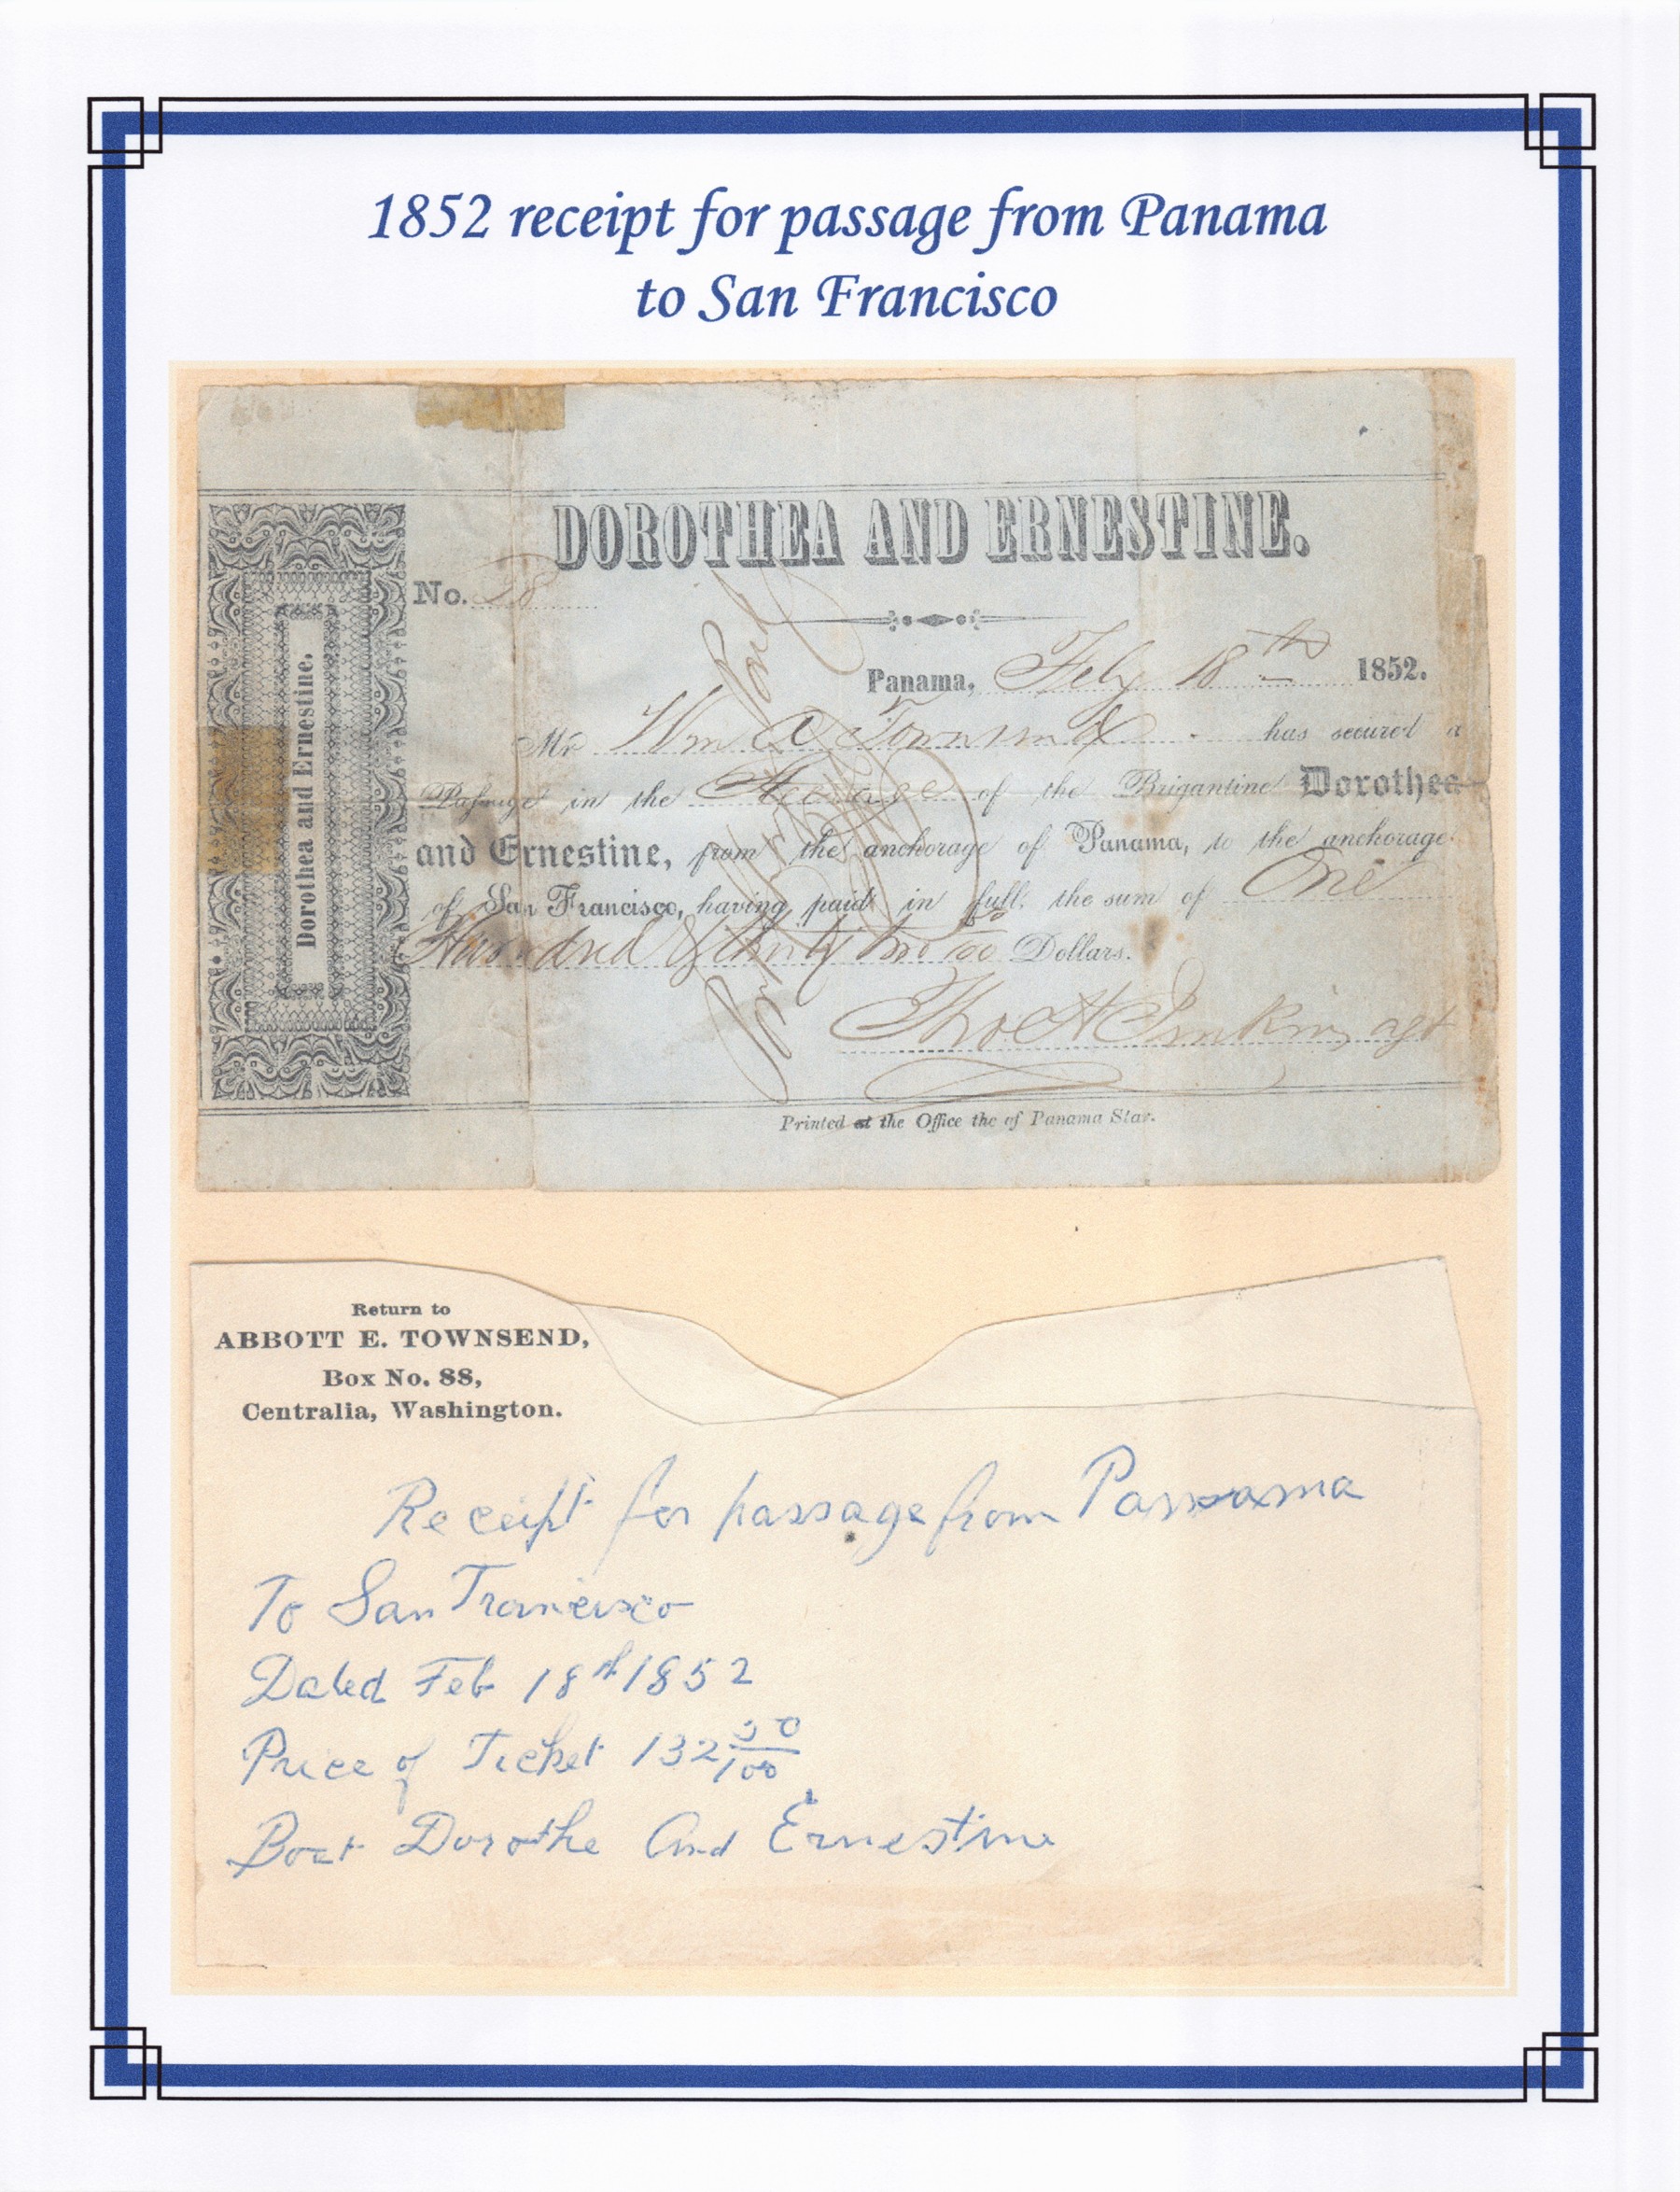 1852 receipt for passage from Panama
to San Francisco
DOROTHEA AND ERNESTINE.
No. 28
Dorothea and Ernestine.
Panama, Feby 18th 1852.
Mr Wm A Townsend has secured a
Passage in the Steerage of the Brigantine Dorothea
and Ernestine, from the anchorage of Panama, to the anchorage
of San Francisco, having paid in full, the sum of One
Hundred & thirty two Dollars.
Tho H Jenkins, agt
Printed at the Office the of Panama Star.
Return to
ABBOTT E. TOWNSEND,
Box No. 88,
Centralia, Washington.
Receipt for passage from Panama
To San Francisco
Dated Feb 18th 1852
Price of Ticket 132 00/100
Boat Dorothe And Ernestine